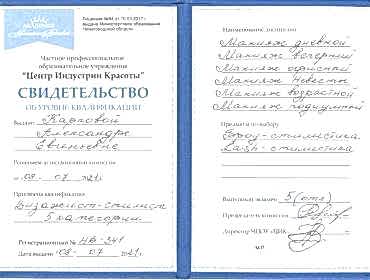 Лицензия №44 от 15.03.2017 г.
выдана Министерством образования
Нижегородской области
Частное профессиональное
образовательное учреждение
"Центр Индустрии Красоты"
СВИДЕТЕЛЬСТВО
ОБ УРОВНЕ КВАЛИФИКАЦИИ
Выдано Карповой
Александре
Евгеньевне
Решением аттестационной комиссии
от 08 07 2021г.
Присвоена квалификация
Визажист-стилист
5 категории
Регистрационный № НВ-241
Дата выдачи 08 07 2021г.
Наименование дисциплин
Макияж дневной
Макияж вечерний
Макияж офисный
Макияж Невесты
Макияж возрастной
Макияж подиумный
Предмет по выбору
Броу-стилистика
Lash-стилистика
Выпускной экзамен 5 (отл)
Председатель комиссии
Директор ЧПОУ «ЦИК
М.П.